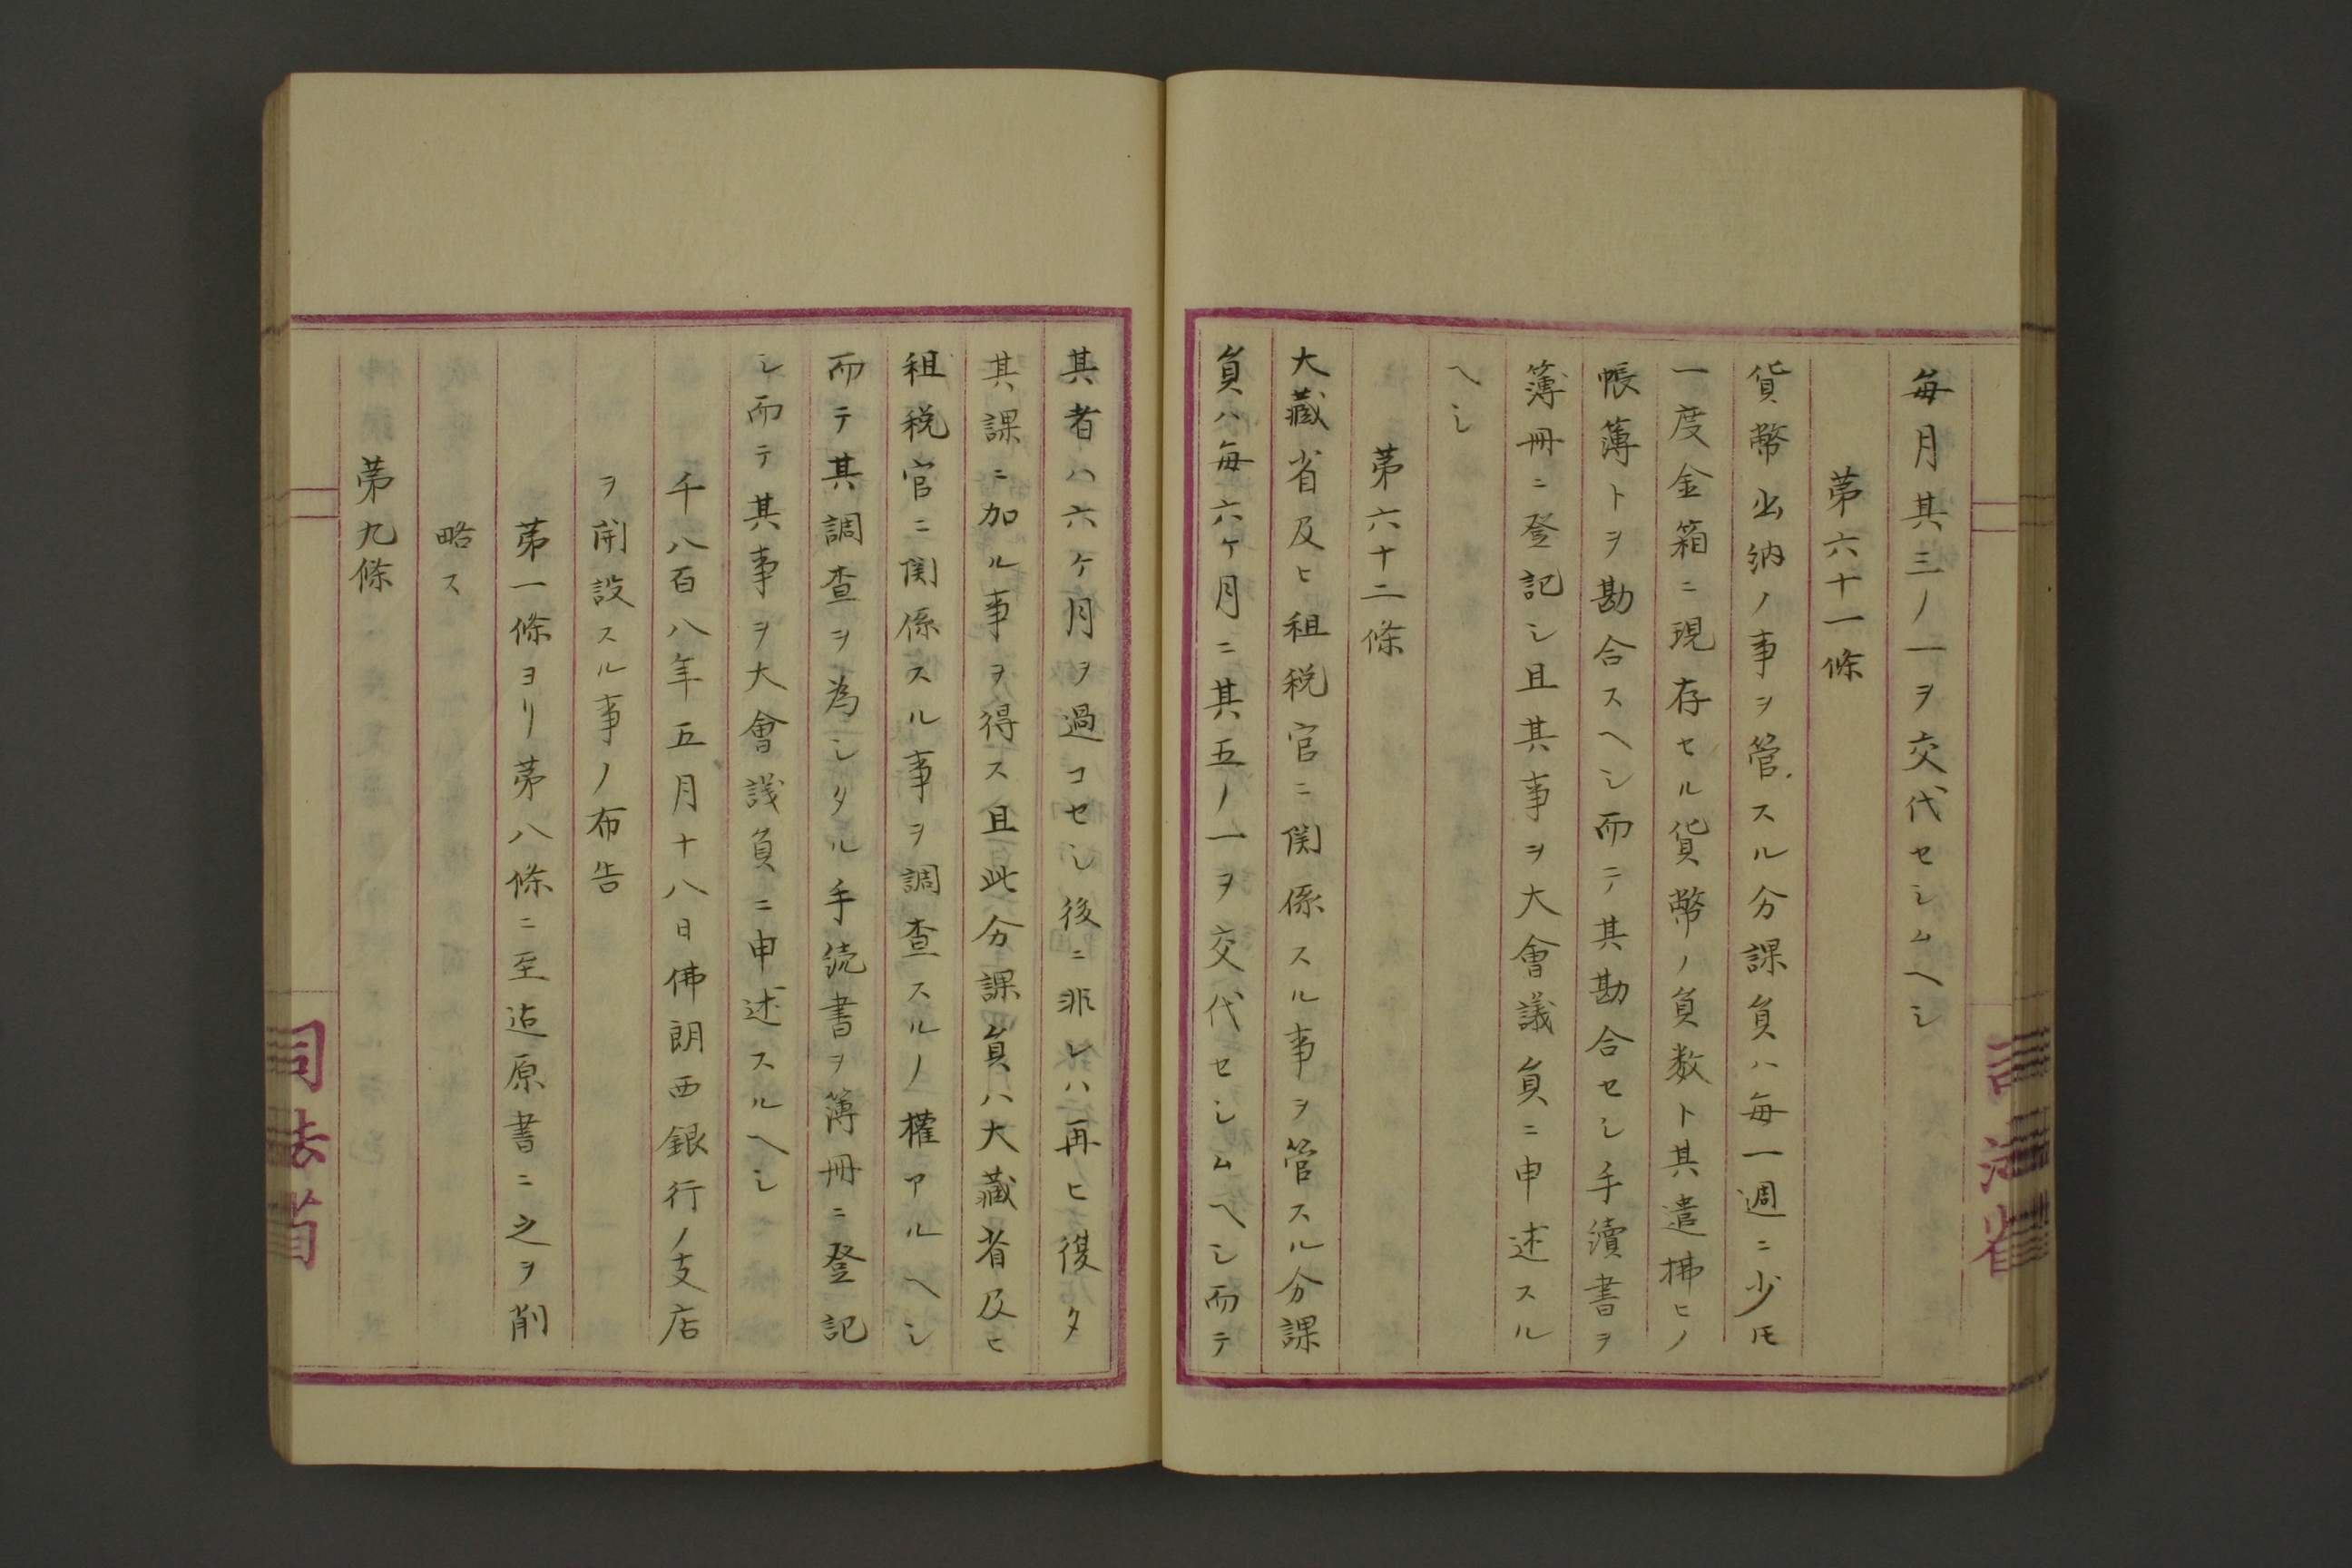 毎月其三ノ一ヲ交代セシムヘシ
第六十一條
貨幣出納ノ事ヲ管スル分課員ハ毎一週ニ少ㇳモ
一度金箱ニ現存セル貨幣ノ員数ト其遣拂ヒノ
帳簿トヲ勘合スヘシ而テ其勘合セシ手續書ヲ
簿冊ニ登記シ且其事ヲ大會議員ニ申述スル
ヘシ
第六十二條
大藏省及ヒ租税官ニ関係スル事ヲ管スル分課
員ハ毎六ケ月ニ其五ノ一ヲ交代セシムヘシ而テ
其者ハ六ケ月ヲ過コセシ後ニ非レハ再ヒ復タ
其課ニ加ル事ヲ得ス且此分課員ハ大藏省及ヒ
租税官ニ関係スル事ヲ調査スルノ權アルヘシ
而テ其調査ヲ為シタル手続書ヲ簿冊ニ登記
シ而テ其事ヲ大會議員ニ申述スルヘシ
千八百八年五月十八日佛朗西銀行ノ支店
ヲ開設スル事ノ布告
第一條ヨリ第八條ニ至迠原書ニ之ヲ削
略ス
第九條
司法省